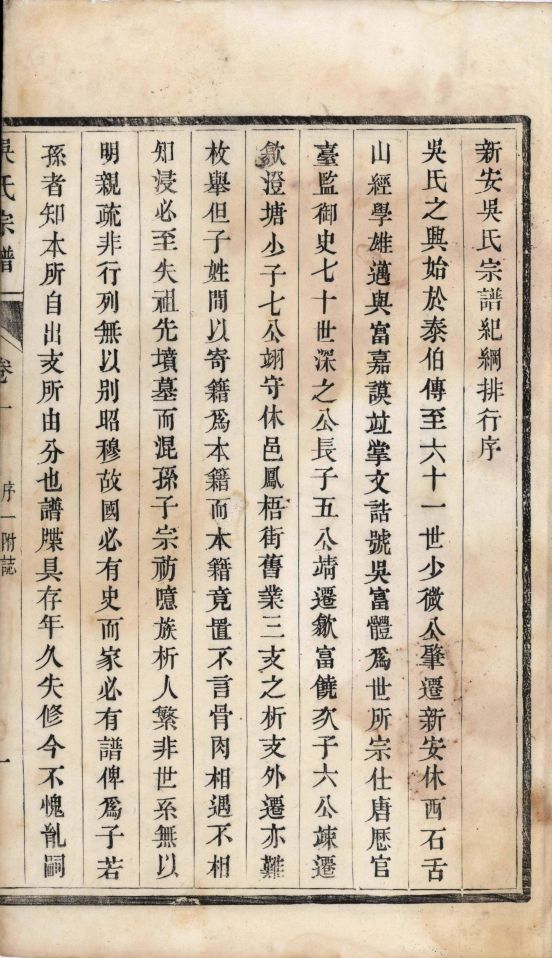 新安吳氏宗譜紀綱排行序
吳氏之興始於泰伯傳至六十一世少微公肇遷新安休西石舌
山經學雄邁與富嘉謨竝掌文誥號吳富體爲世所宗仕唐歷官
臺監御史七十世深之公長子五公靖遷歙富饒次子六公竦遷
歙澄塘少子七公翊守休邑鳳梧街舊業三支之析支外遷亦難
枚舉但子姓間以寄籍爲本籍而本籍竟置不言骨肉相遇不相
知浸必至失祖先墳墓而混孫子宗祊噫族析人繁非世系無以
明親疏非行列無以别昭穆故國必有史而家必有譜俾爲子若
孫者知本所自出支所由分也譜牒具存年久失修今不愧亂嗣
吳氏宗譜
卷一
序一附誌
一